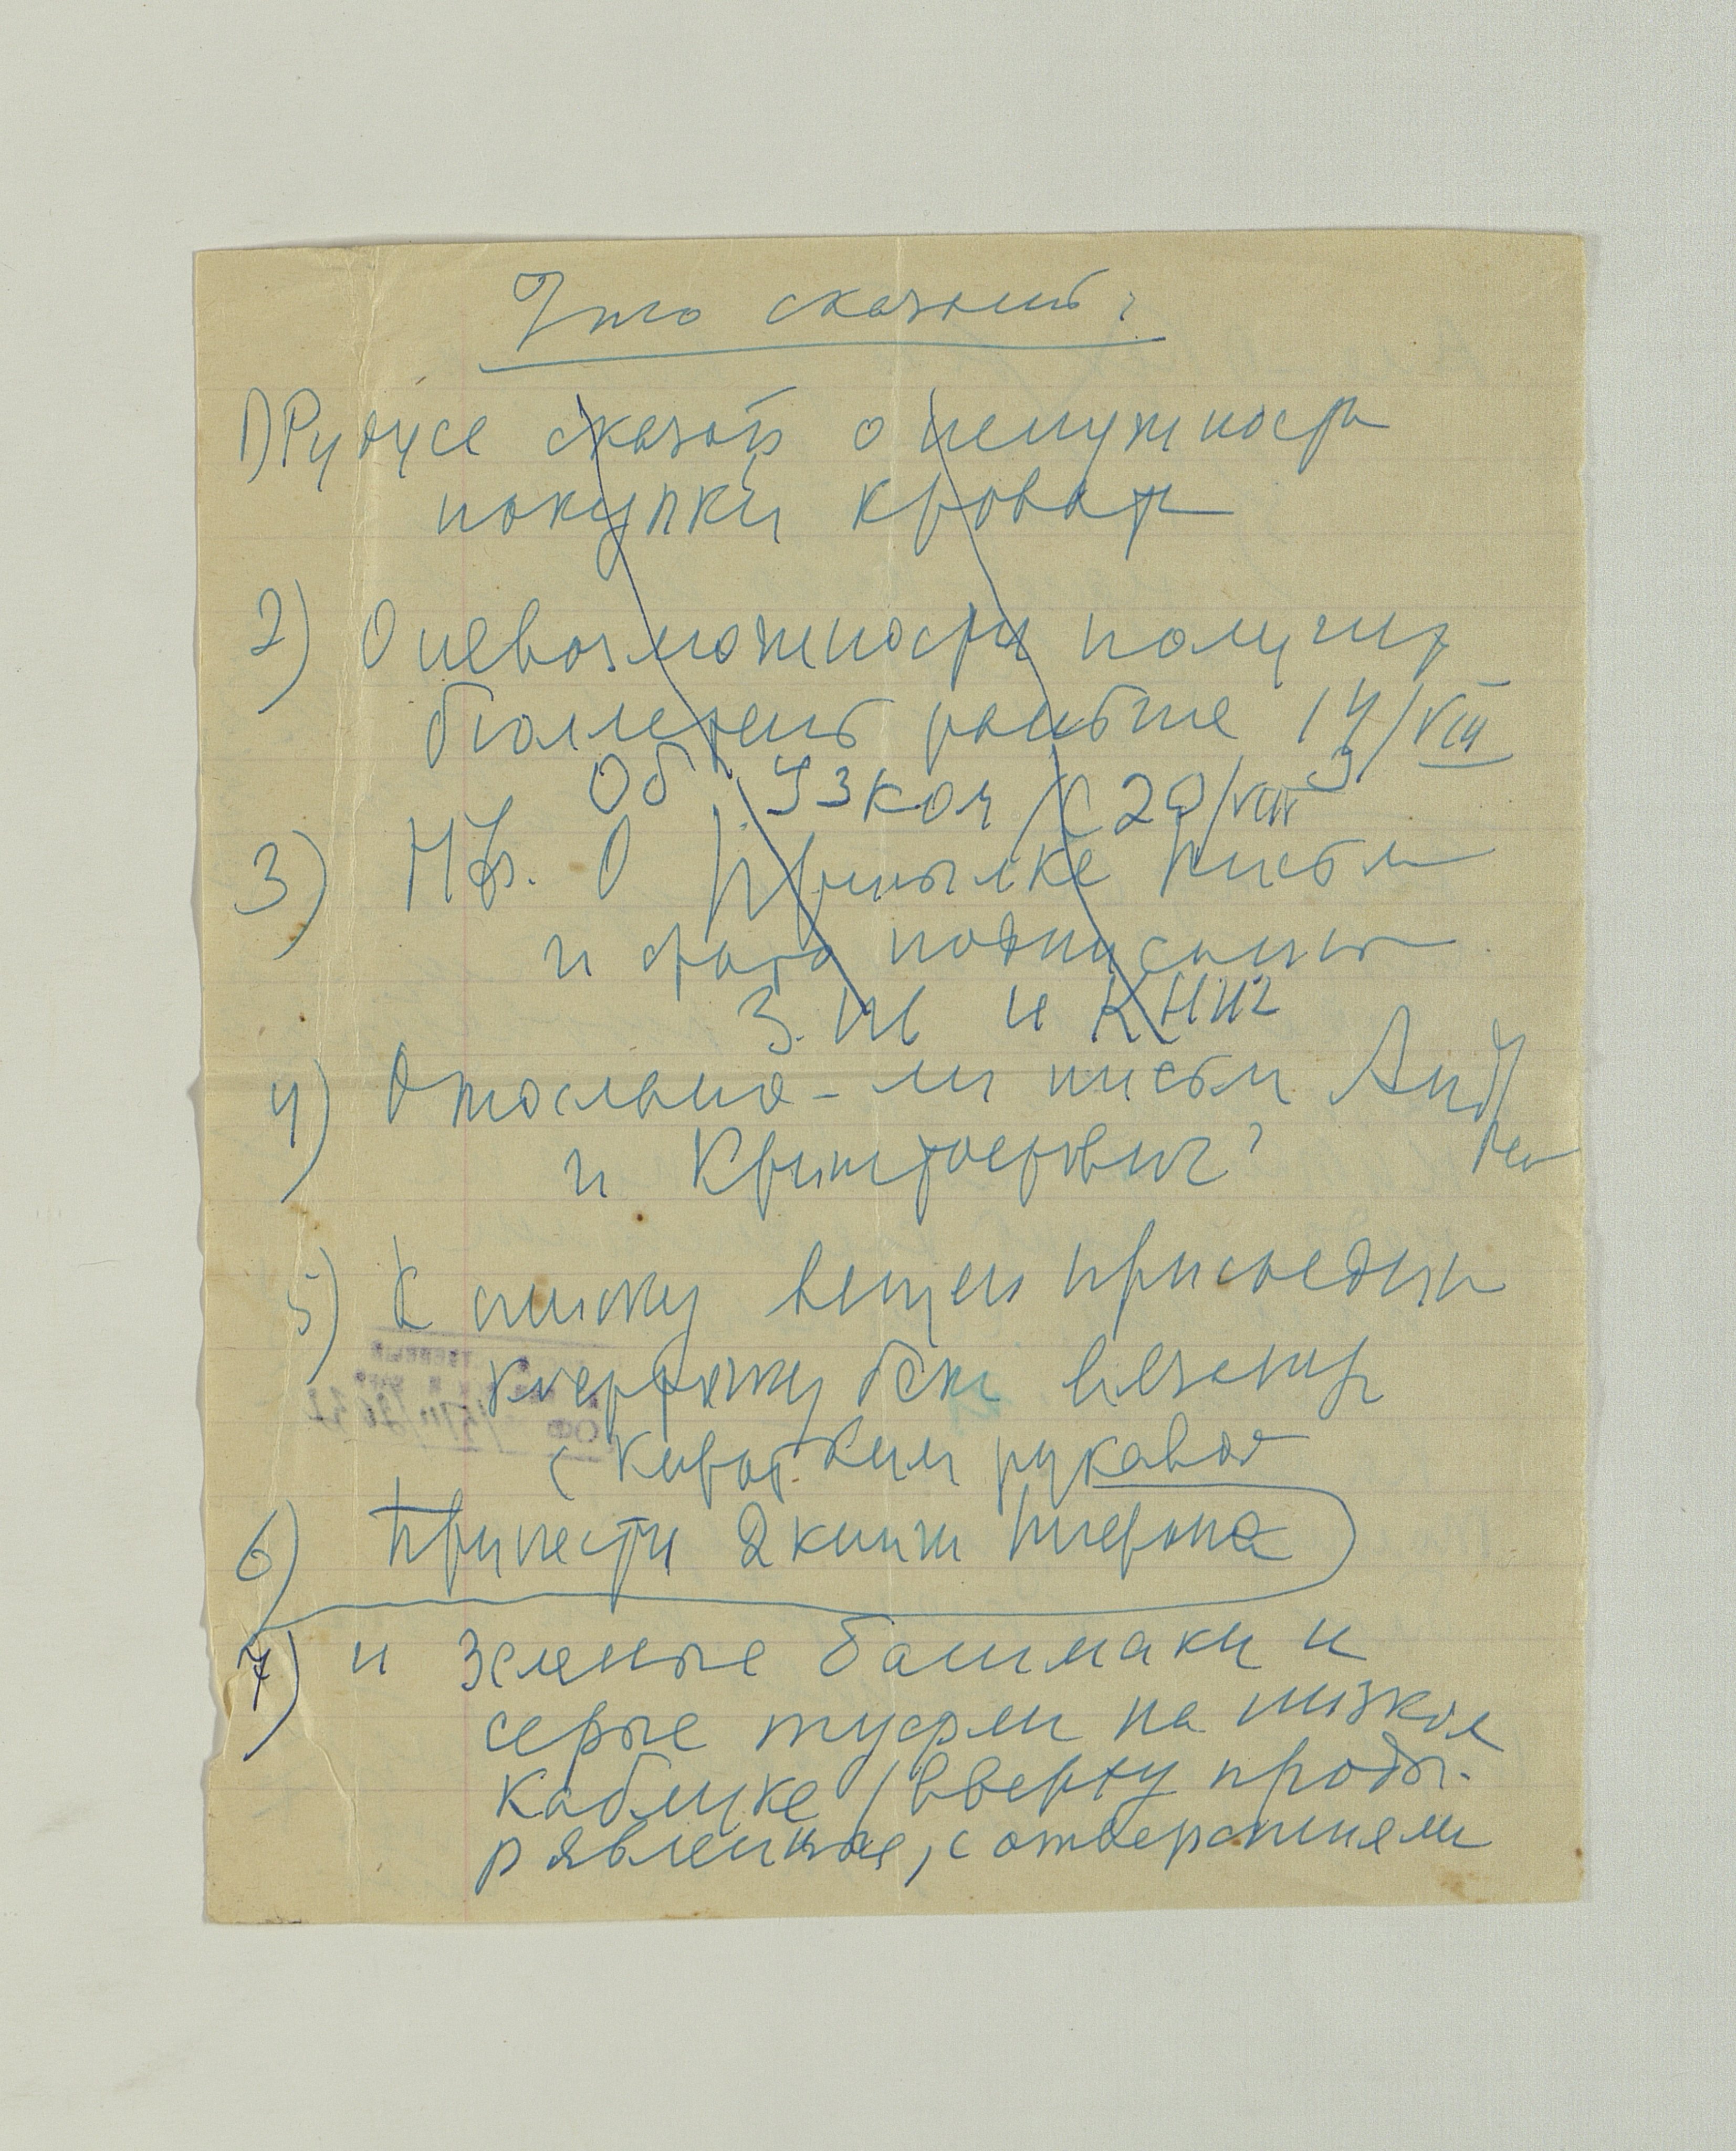 Что сказать?
1) Рудусе сказать о ненужности
покупки кровати
2) О невозможности получить
бюллетень раньше 14/VIII
Об Узком с 20/VIII
3) НЬ. О присылке письма
и фото подписанн
З. Ш и книг
4) Отослано-ли письмо Анд
рею
и ?
5) К списку вещей присоедин
безк
с коротким рукавом
6) Принести 2 книги
7) и зеленые башмаки и
серые туфли на низком
каблуке /вверху проды-
рявленные, с отверстиями